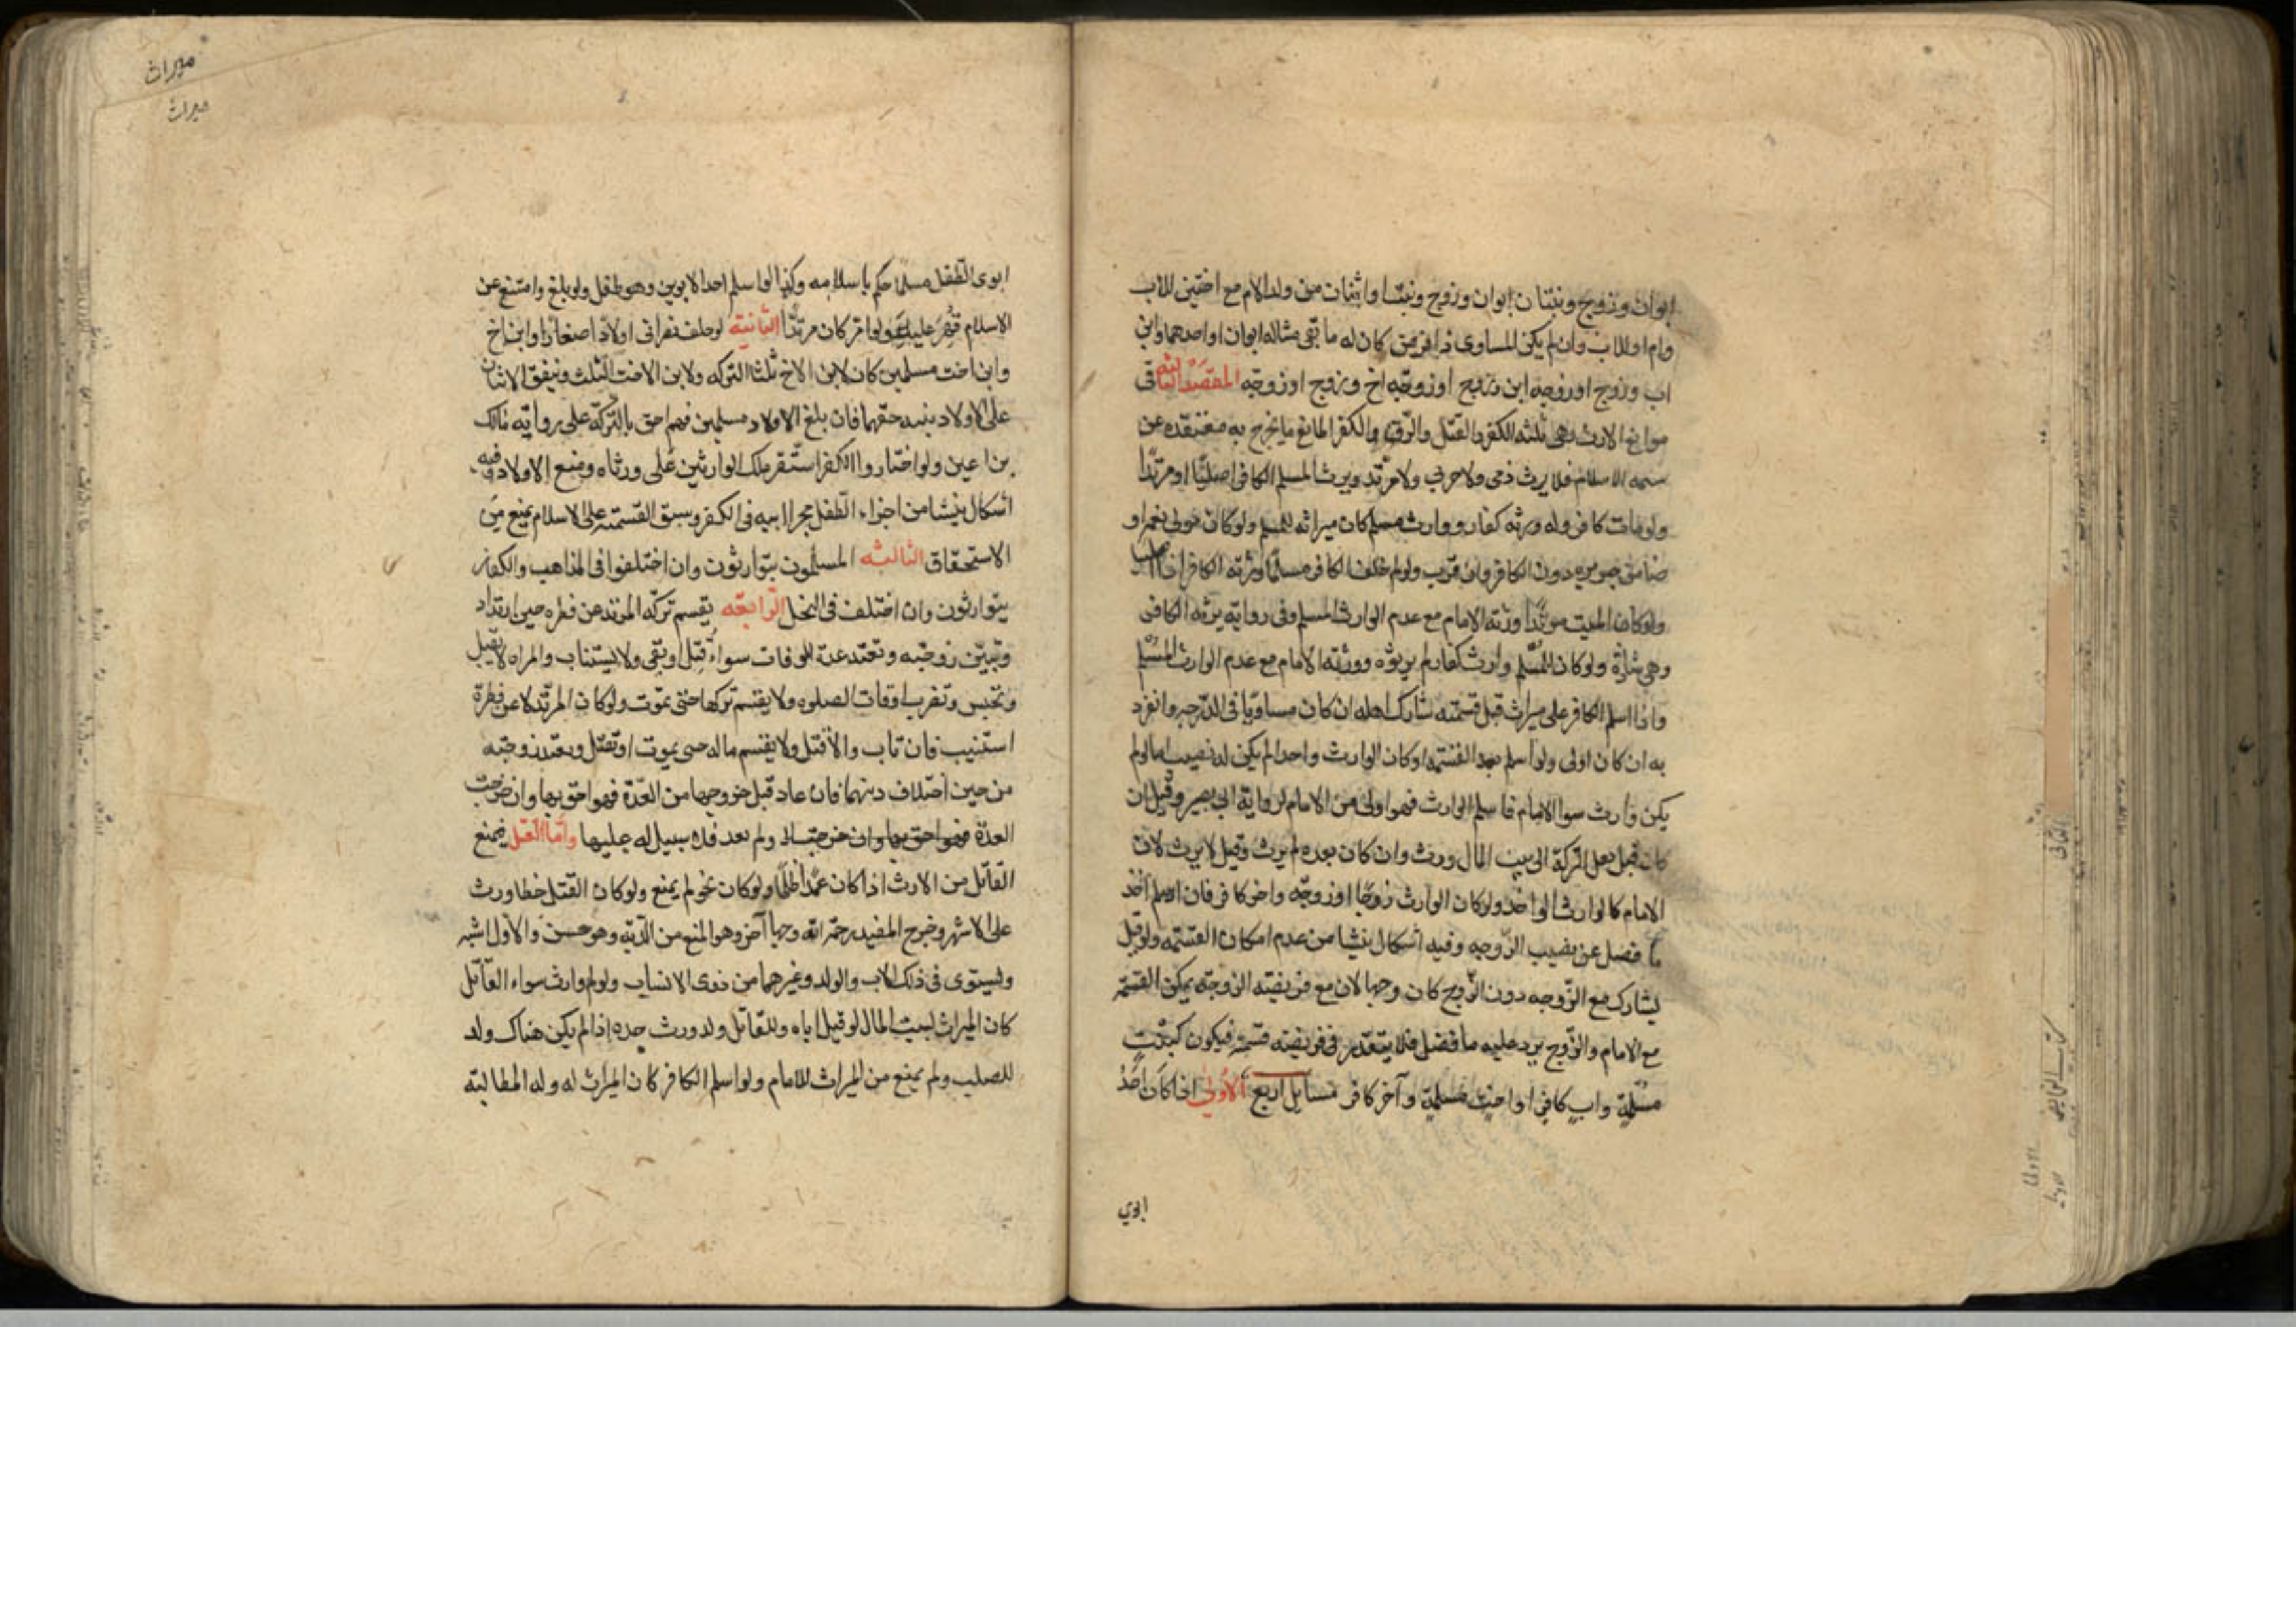 ابوان وزوج وبنتان ابوان وزوج وبنت او اثنان من ولد الام مع اختين للاب
وام او للاب وان لم يكن المساوى ذا فرض كان له ما بقى مثاله ابوان او احدهما وابن
اب وزوج او زوجه ابن وزوج او زوجه اخ وزوج او زوجه المقصد الثانى فى
موانع الارث وهى ثلثه الكفر والقتل والرق والكفر المانع ما يخرج به معتقده عن
سمه الاسلام فلا يرث ذمى ولا حربى ولا مرتد ويرث المسلم الكافر اصليا او مرتدا
ولو مات كافر وله ورثه كفار ووارث مسلم كان ميراثه للمسلم ولو كان مولى نعمه او
ضامن جريره دون الكافر وان قرب ولو لم يخلف الكافر مسلما ورثه الكافر اذا كان اصليا
ولو كان الميت مرتدا ورثه الامام مع عدم الوارث المسلم وفى روايه يرثه الكافر
وهى شاذة ولو كان للمسلم وارث كفار لم يرثوه وورثه الامام مع عدم الوارث المسلم
واذا اسلم الكافر على ميراث قبل قسمته شارك اهله ان كان مساويا فى الدرجه وانفرد
به ان كان اولى ولو اسلم بعد القسمه او كان الوارث واحدا لم يكن له نصيب اما لو لم
يكن وارث سوا الامام فاسلم الوارث فهو اولى من الامام لرواية ابى بصير وقيل ان
كان قبل نقل التركة الى بيت المال ورث وان كان بعده لم يرث وقيل لا يرث لان
الامام كالوارث الواحد ولو كان الوارث زوجا او زوجه واخر كافر فان اسلم اخذ
ما فضل عن نصيب الزوجه وفيه اشكال ينشا من عدم امكان القسمه ولو قيل
يشارك مع الزوجه دون الزوج كان وجها لان مع فريضته الزوجة يمكن القسمة
مع الامام والزوج يرد عليه ما فضل فلا يتقدر فى فريضته قسمة فيكون كبنت
مسلمة واب كافر او اخت مسلمة وآخر كافر مسايل اربع الاولى اذا كان احد
ابوي
ميراث
ميراث
ابوى الطفل مسلما حكم باسلامه وكذا لو اسلم احد الابوين وهو طفل ولو بلغ وامتنع عن
الاسلام قهر عليه ولو اصر كان مرتدا الثانية لو خلف نصرانى اولادا صغارا وابن اخ
وابن اخت مسلمين كان لابن الاخ ثلثا التركه ولابن الاخت الثلث وينفق الاثنان
على الاولاد بنسبه حقهما فان بلغ الاولاد مسلمين فهم احق بالتركة على رواية مالك
بن اعين ولو اختاروا الكفر استقر ملك الوارثين على ورثاه ومنع الاولاد وفيه
اشكال ينشا من اجراء الطفل مجرا ابيه فى الكفر وسبق القسمه على الاسلام يمنع من
الاستحقاق الثالثه المسلمون يتوارثون وان اختلفوا فى المذاهب والكفار
يتوارثون وان اختلف فى النحل الرابعه يقسم تركه المرتد عن فطره حين ارتداد
وتبين زوجته وتعتد عدة الوفات سواء قتل او بقى ولا يستتاب والمراه لا يقتل
وتحبس وتضرب اوقات الصلوه ولا يقسم تركها حتى يموت ولو كان المرتد لا عن فطرة
استتيب فان تاب والا قتل ولا يقسم ماله حتى يموت او تقتل وبعتد زوجته
من حين اختلاف دينهما فان عاد قبل خروجها من العدة فهو احق بها وان خرجت
العدة فهو احق بها وان خرجت ولم يعد فلا سبيل له عليها واما القتل فيمنع
القاتل من الارث اذا كان عمدا ظلما ولو كان بحق لم يمنع ولو كان القتل خطا ورث
على الاشهر وخرج المفيد رحمه الله وجها آخر وهو المنع من الدية وهو حسن والاول اشبه
وليستوى فى ذلك الاب والولد وغيرهما من ذوى الانساب ولو لم وارث سواء القاتل
كان الميراث لبيت المال لو قيل اباه وللقاتل ولد ورث جده اذا لم يكن هناك ولد
للصلب ولم يمنع من الميراث للامام ولو اسلم الكافر كان الميراث له وله المطالبة